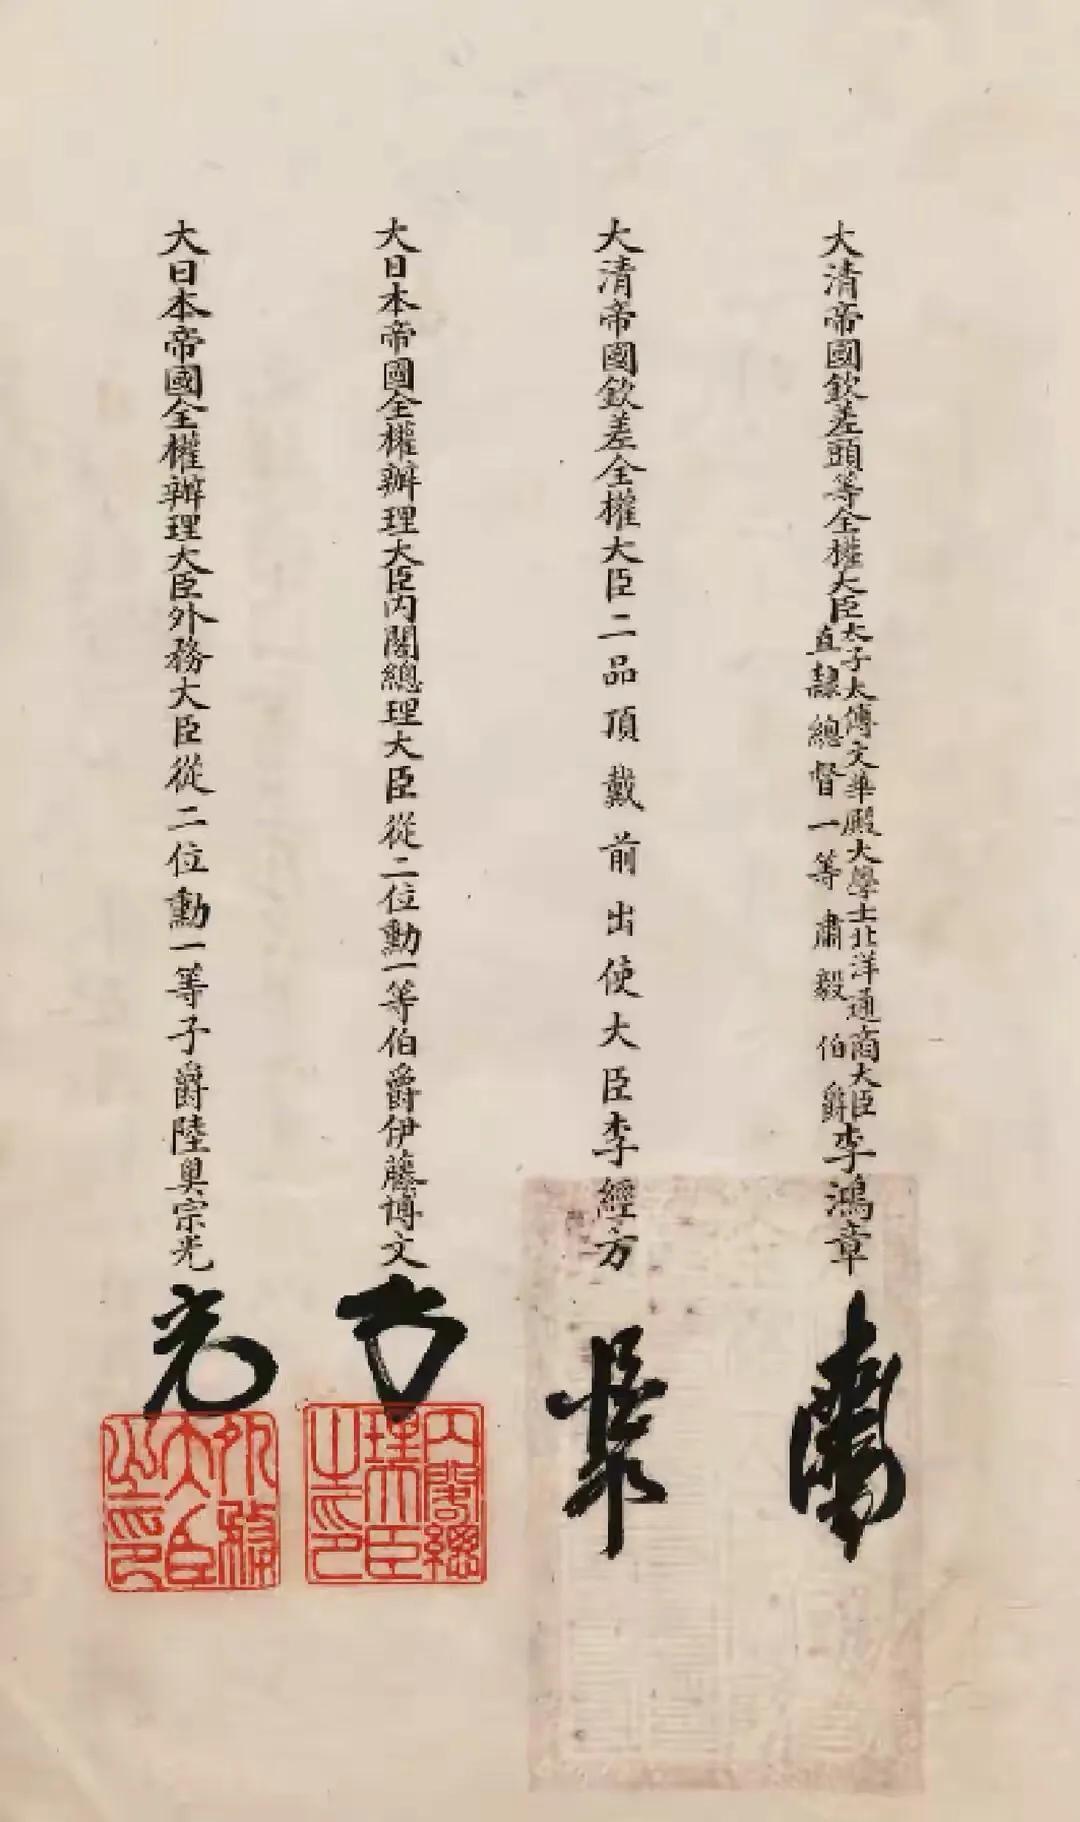 大清帝國欽差頭等全權大臣太子太傅文華殿大學士北洋通商大臣直隸總督一等肅毅伯爵李鴻章
大清帝國欽差全權大臣二品頂戴前出使大臣李經方
大日本帝國全權辦理大臣內閣總理大臣從二位勳一等伯爵伊藤博文
內閣總理大臣之印
大日本帝國全權辦理大臣外務大臣從二位勳一等子爵陸奧宗光
外務大臣之印